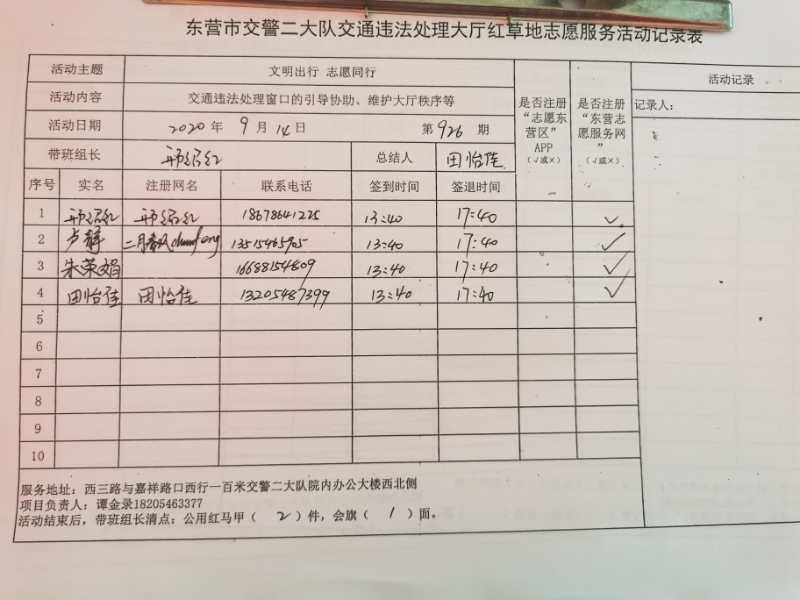 东营市交警二大队交通违法处理大厅红草地志愿服务活动记录表
活动主题 文明出行 志愿同行
活动内容 交通违法处理窗口的引导协助、维护大厅秩序等
活动日期 2020年 9月 14日 第 926 期
带班组长 总结人 田怡佳
是否注册“志愿东营区”APP（√或×）
是否注册“东营志愿服务网”（√或×）
活动记录
记录人：
序号 实名 注册网名 联系电话 签到时间 签退时间
1 18678641225 13:40 17:40 ✓
2 卢静 二月春风 13515465705 13:40 17:40 ✓
3 朱荣娟 16688154809 13:40 17:40 ✓
4 田怡佳 田怡佳 13205487399 13:40 17:40 ✓
5
6
7
8
9
10
服务地址：西三路与嘉祥路口西行一百米交警二大队院内办公大楼西北侧
项目负责人：谭金录18205463377
活动结束后，带班组长清点：公用红马甲（ 2 ）件，会旗（ 1 ）面。